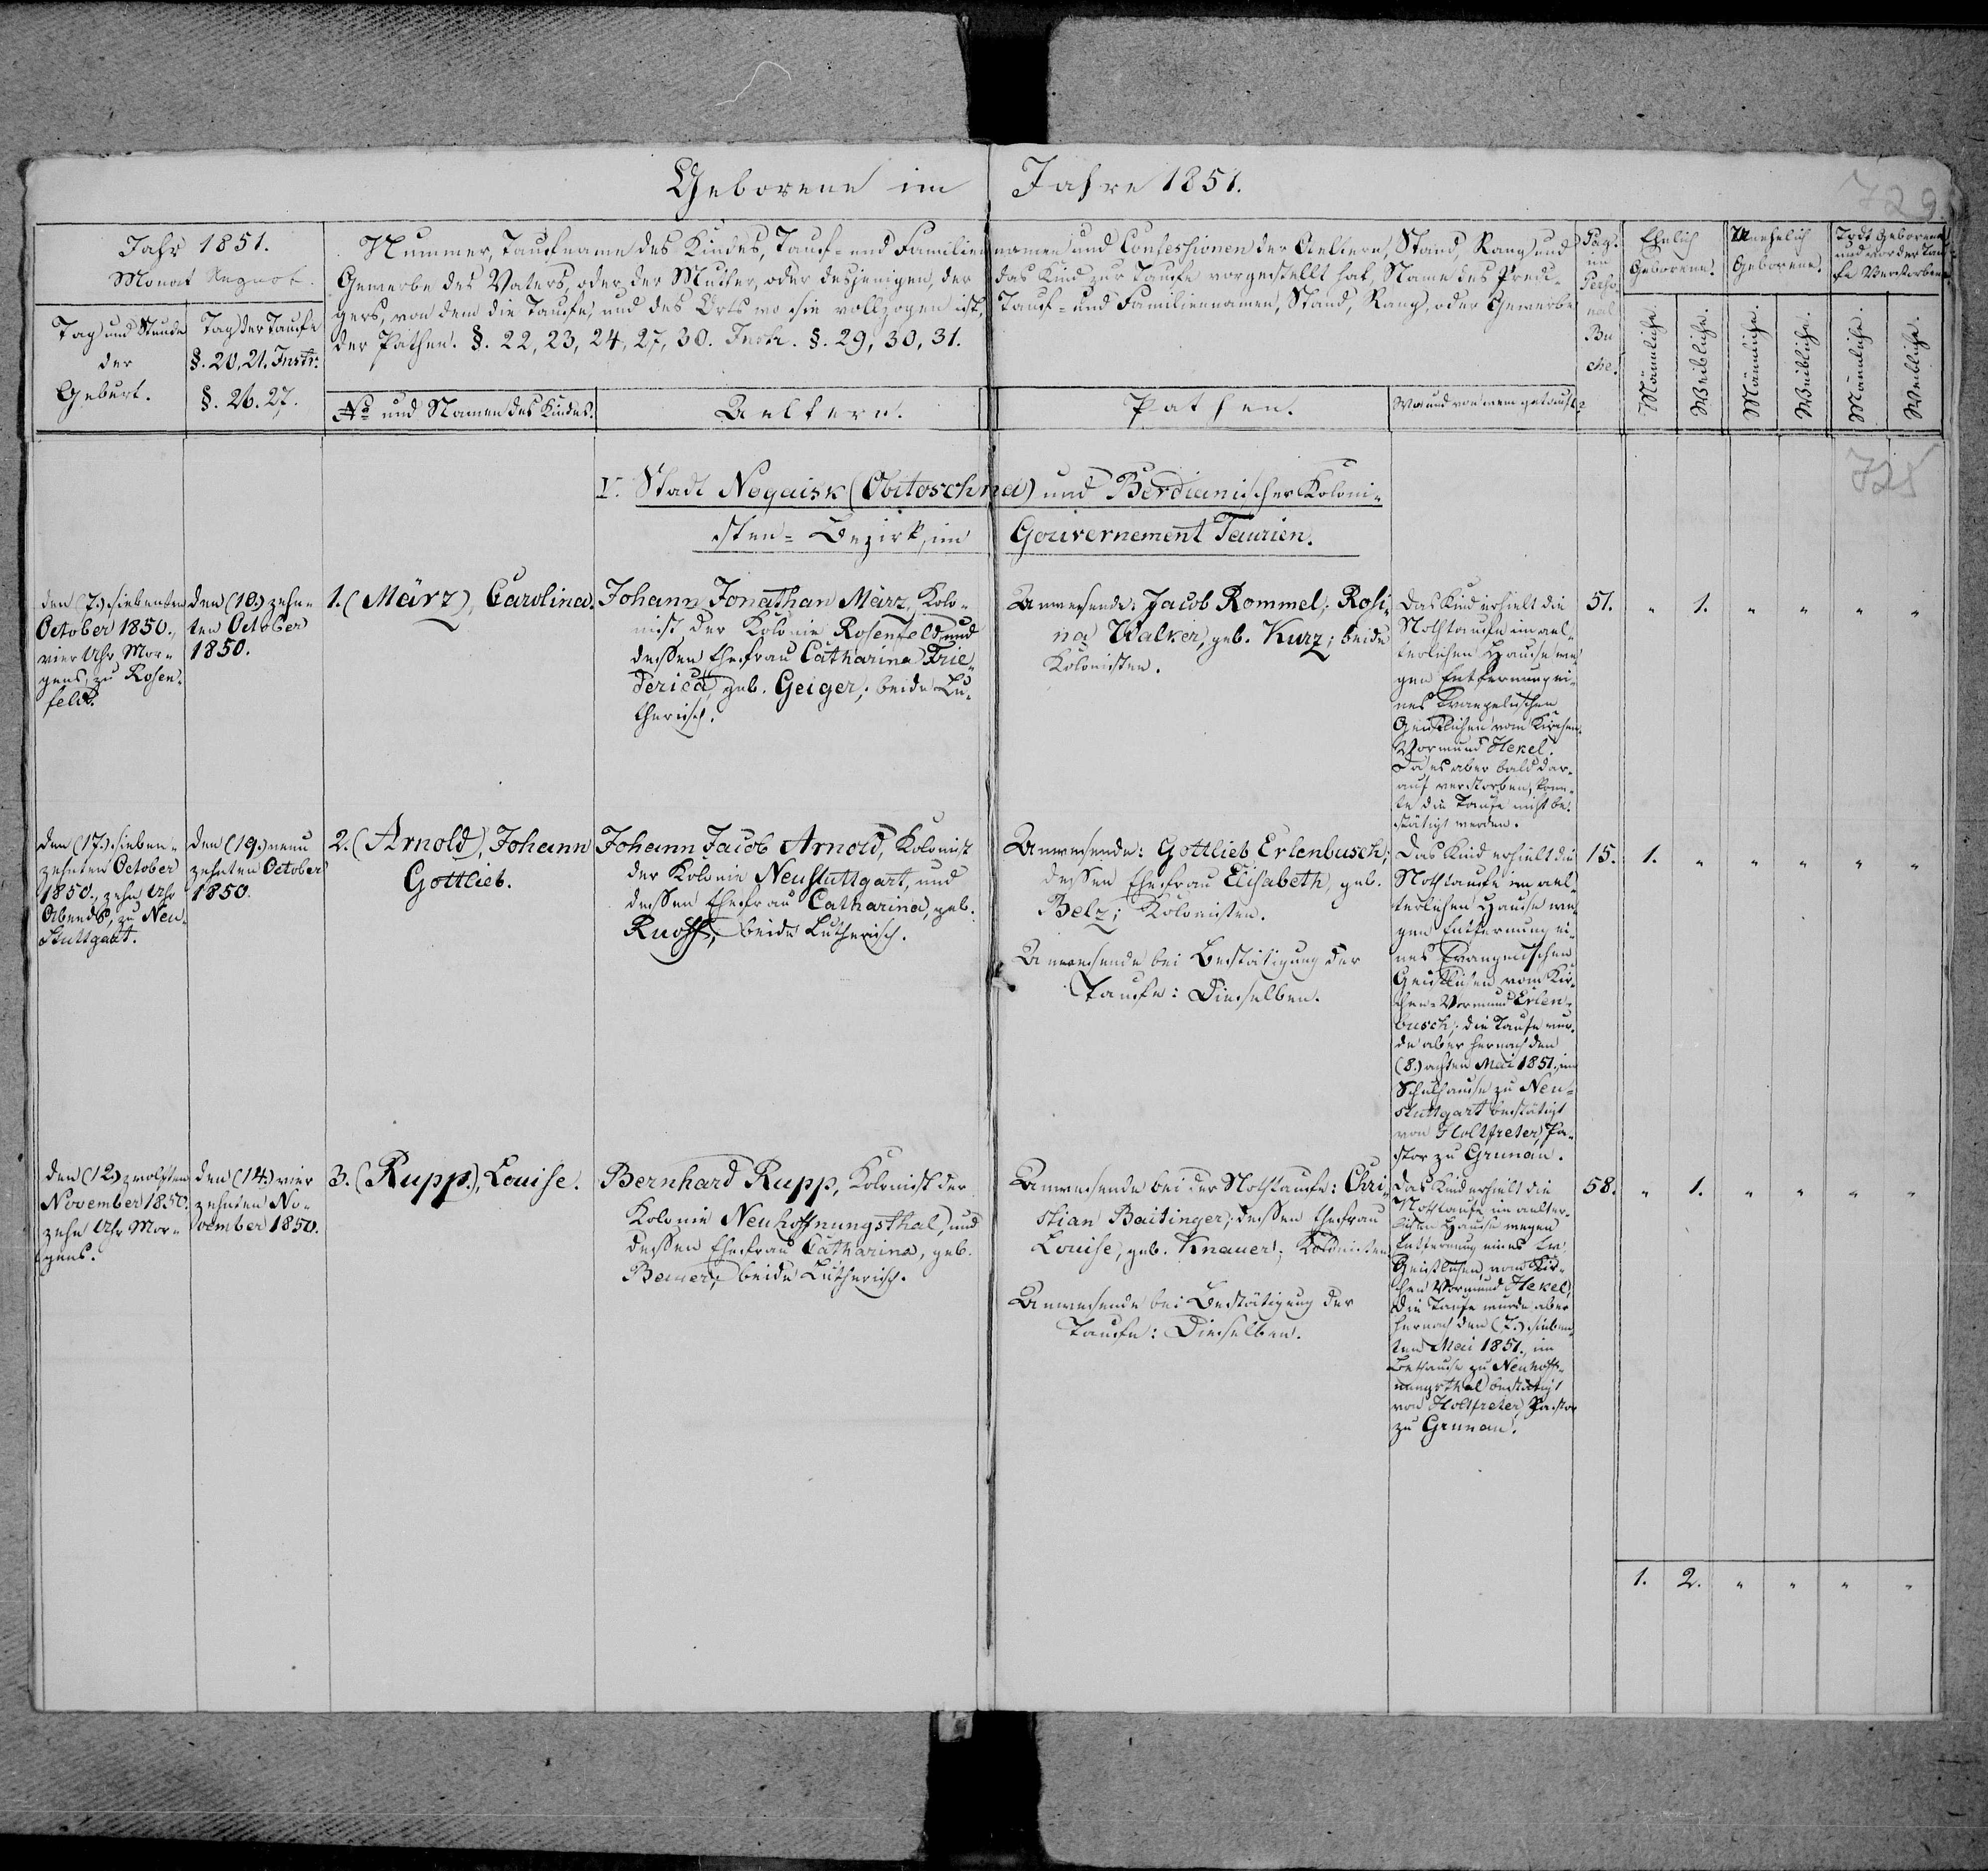 Geborene im Jahre 1851.
729
Jahr 1851.
Monat
Tag und Stunde
der
Geburt.
Tag der Taufe
§. 20, 21. Instr.
§. 26. 27.
Nummer, Taufname des Kindes, Tauf- und Familiennamen und Confessionen der Aeltern, Stand, Rang und
Gewerbe des Vaters, oder der Mutter, oder desjenigen, der das Kind zur Taufe vorgestellt hat, Name des Predi-
gers, von dem die Taufe, und des Orts wo sie vollzogen ist, Tauf- und Familiennamen, Stand, Rang, oder Gewerbe
der Pathen. §. 22, 23, 24, 27, 30. Instr. §. 29, 30, 31.
No und Namen des Kindes.
Aeltern.
Pathen.
Wo und von wem getauft?
Pag.
im
Perso
nal
Bu
che.
Ehelich
Geborene.
Unehelich
Geborene.
Todt Geborene
und vor der Tau-
fe Verstorbene
Männliche.
Weibliche.
Männliche.
Weibliche.
Männliche.
Weibliche.
725
I. Stadt Nogaisk (Obitoschna) und Berdianischer Koloni-
sten-Bezirk, im Gouvernement Taurien.
den (7.) siebenten
October 1850.,
vier Uhr Mor-
gens, zu Rosen-
feld.
den (10.) zehn-
ten October
1850.
1. (März), Carolina.
Johann Jonathan März, Kolo-
nist der Kolonie Rosenfeld, und
dessen Ehefrau Catharina Frie-
derica, geb. Geiger; beide Lu-
therisch.
Anwesende: Jacob Rommel; Rosi-
na Walker, geb. Kurz; beide
Kolonisten.
Das Kind erhielt die
Nothtaufe im ael-
terlichen Hause we-
gen Entfernung ei-
nes Evangelischen
Geistlichen vom Kirchen-
Vormund Hekel.
Da es aber bald dar-
auf verstorben, konn-
te die Taufe nicht be-
stätigt werden.
51. " 1. " " " "
den (17.) sieben-
zehnten October
1850., zehn Uhr
Abends, zu Neu-
Stuttgart.
den (19.) neun
zehnten October
1850.
2. (Arnold), Johann
Gottlieb.
Johann Jacob Arnold, Kolonist
der Kolonie Neustuttgart, und
dessen Ehefrau Catharina, geb.
Ruoff; beide Lutherisch.
Anwesende: Gottlieb Erlenbusch;
dessen Ehefrau Elisabeth, geb.
Belz; Kolonisten.
Anwesende bei Bestätigung der
Taufe: Dieselben.
Das Kind erhielt die
Nothtaufe im ael-
terlichen Hause we-
gen Entfernung ei-
nes Evangelischen
Geistlichen vom Kir-
chen-Vormund Erlen-
busch; die Taufe wur-
de aber hernach den
(8.) achten Mai 1851., im
Schulhause zu Neu-
stuttgart bestätigt
von Holtfreter, Pa-
stor zu Grunau.
15. 1. " " " " "
den (12.) zwölften
November 1850.
zehn Uhr Mor-
gens.
den (14.) vier
zehnten No-
vember 1850.
3. (Rupp.), Louise.
Bernhard Rupp, Kolonist der
Kolonie Neuhoffnungsthal, und
dessen Ehefrau Catharina, geb.
beide Lutherisch.
Anwesende bei der Nothtaufe: Chri-
stian Baitinger; dessen Ehefrau
Louise, geb. Knauer; Kolonisten
Anwesende bei Bestätigung der
Taufe: Dieselben.
Das Kind erhielt die
Nothtaufe im aelter-
lichen Hause wegen
Entfernung eines Ev.
Geistlichen, vom Kir-
chen Vormund Hekel,
die Taufe wurde aber
hernach den (7.) sieben-
ten Mai 1851., im
Bethause zu Neuhoff-
nungsthal bestätigt
von Holtfreter, Pastor
zu Grunau.
58. " 1. " " " "
1. 2. " " " "